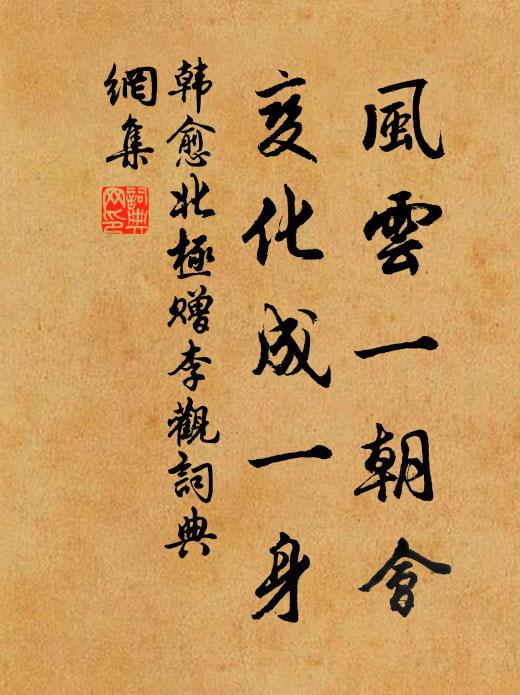 風雲一朝會
变化成一身
韩愈北極赠李觀詞典
網集
詞典网印